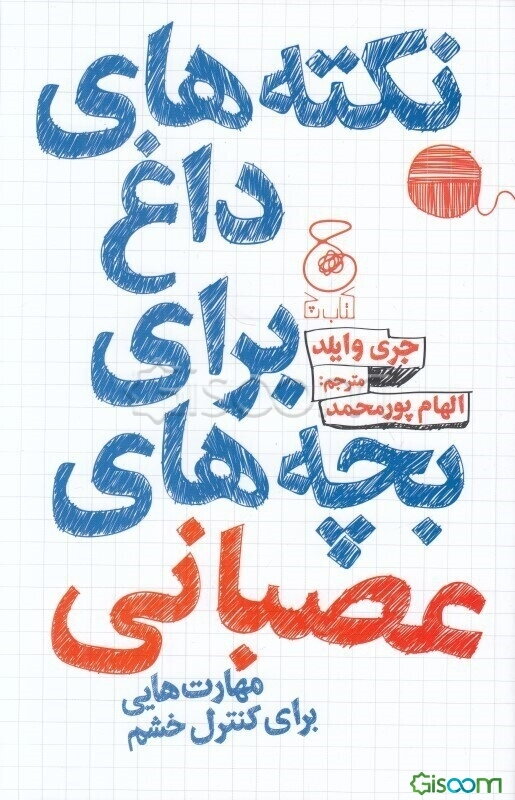 نکته‌های
داغ
برای
بچه‌های
عصبانی
کتاب چ
جری وایلد
مترجم:
الهام پورمحمد
مهارت‌هایی
برای کنترل خشم
Gisoom
Gisoom